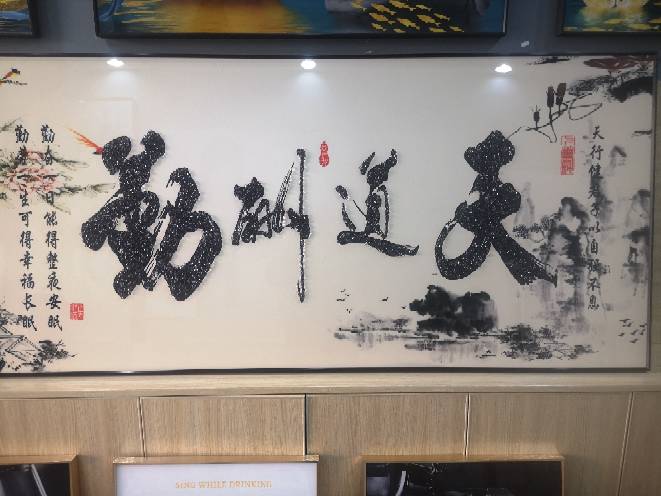 天行健君子以自强不息
天道酬勤
勤奋一日能得整夜安眠
勤奋一生可得幸福长眠
SING WHILE DRINKING